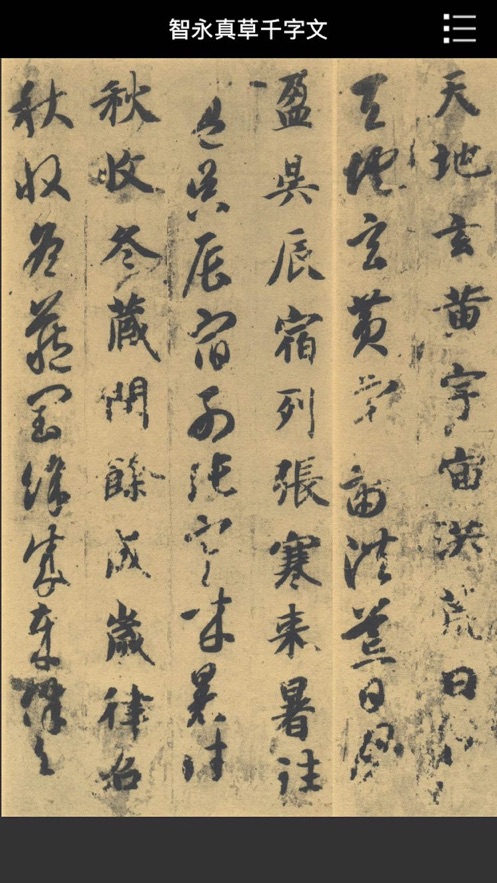 智永真草千字文
天地玄黄宇宙洪荒日月
天地玄黄宇宙洪荒日月
盈昃辰宿列張寒来暑往
盈昃辰宿列張寒来暑往
秋收冬藏閏餘成歲律召
秋收冬藏閏餘成歲律召